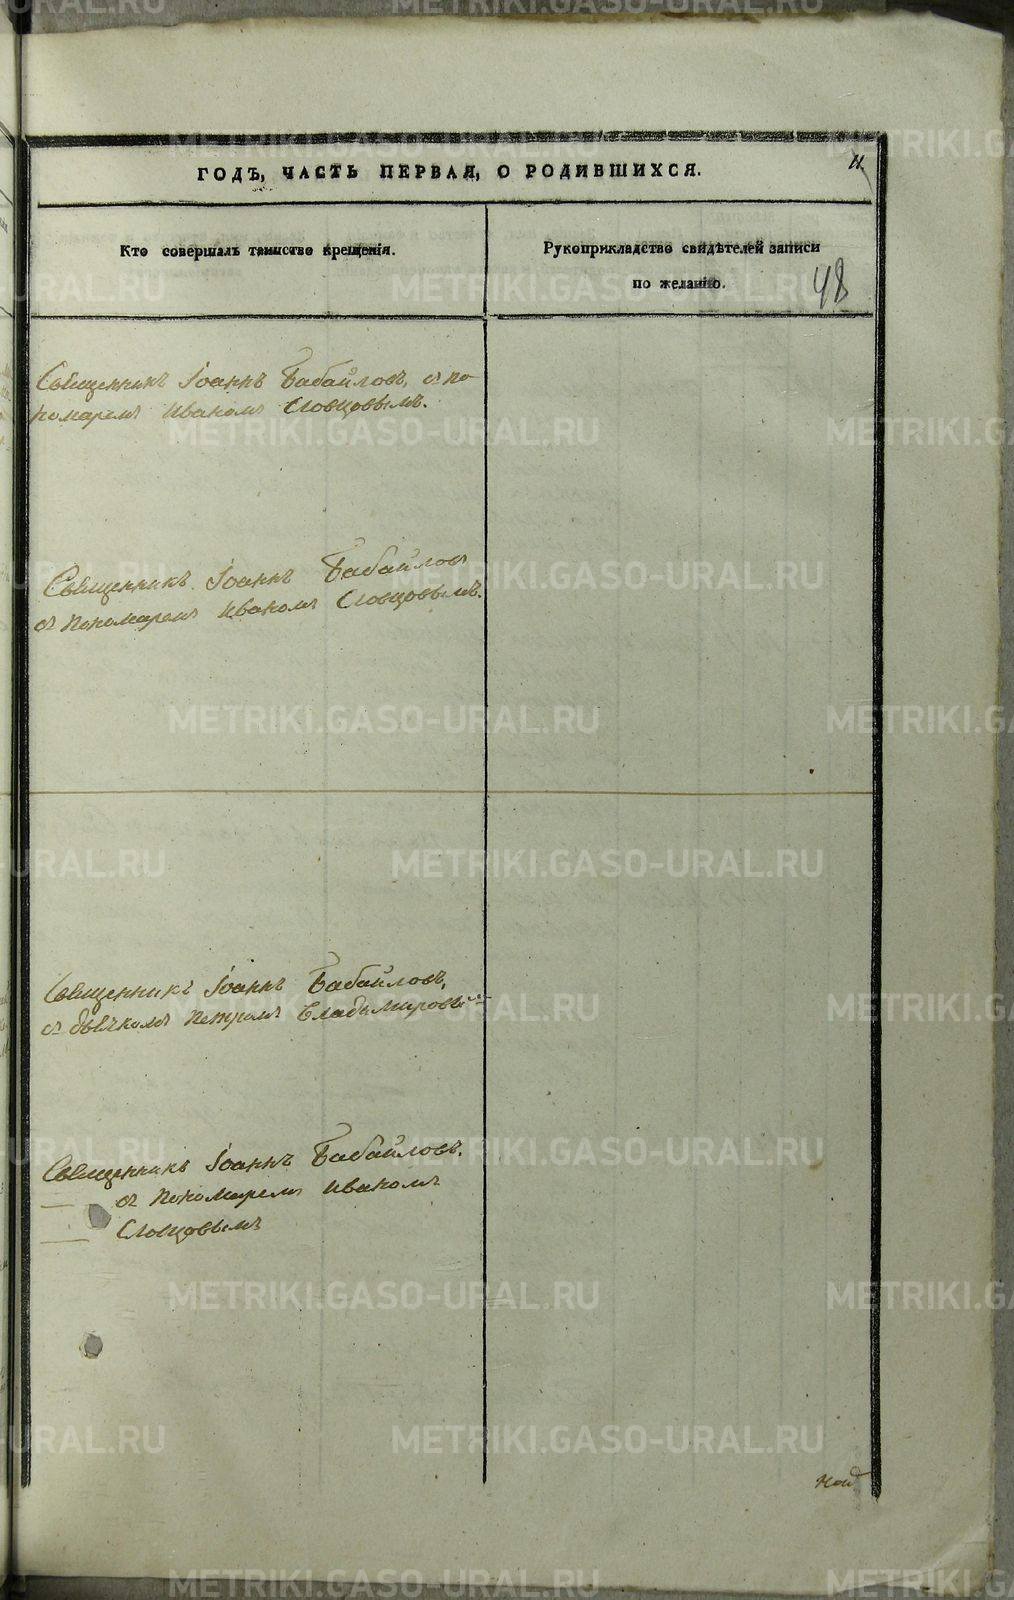 11
ГОДЪ, ЧАСТЬ ПЕРВАЯ, О РОДИВШИХСЯ.
Кто совершалъ таинство крещенія.
Рукоприкладство свидѣтелей записи
по желанію.
48
Священникъ Іоаннъ Бабайловъ, съ по-
номаремъ Иваномъ Словцовымъ.
Священникъ Іоаннъ Бабайловъ
съ пономаремъ Иваномъ Словцовымъ.
Священникъ Іоаннъ Бабайловъ,
съ дьячкомъ Петромъ Владимировымъ
Священникъ Іоаннъ Бабайловъ.
съ пономаремъ Иваномъ
Словцовымъ
METRIKI.GASO-URAL.RU